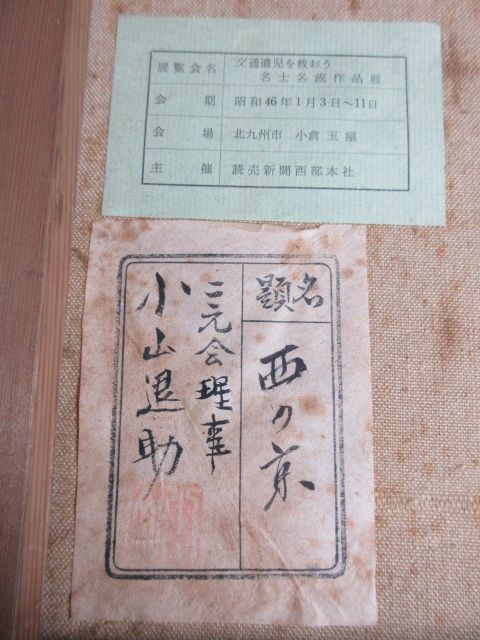 展覧会名 交通遺児を救おう
名士名流作品展
会期 昭和46年1月3日~11日
会場 北九州市 小倉玉屋
主催 読売新聞西部本社
題名
西の京
二元会理事
小山退助